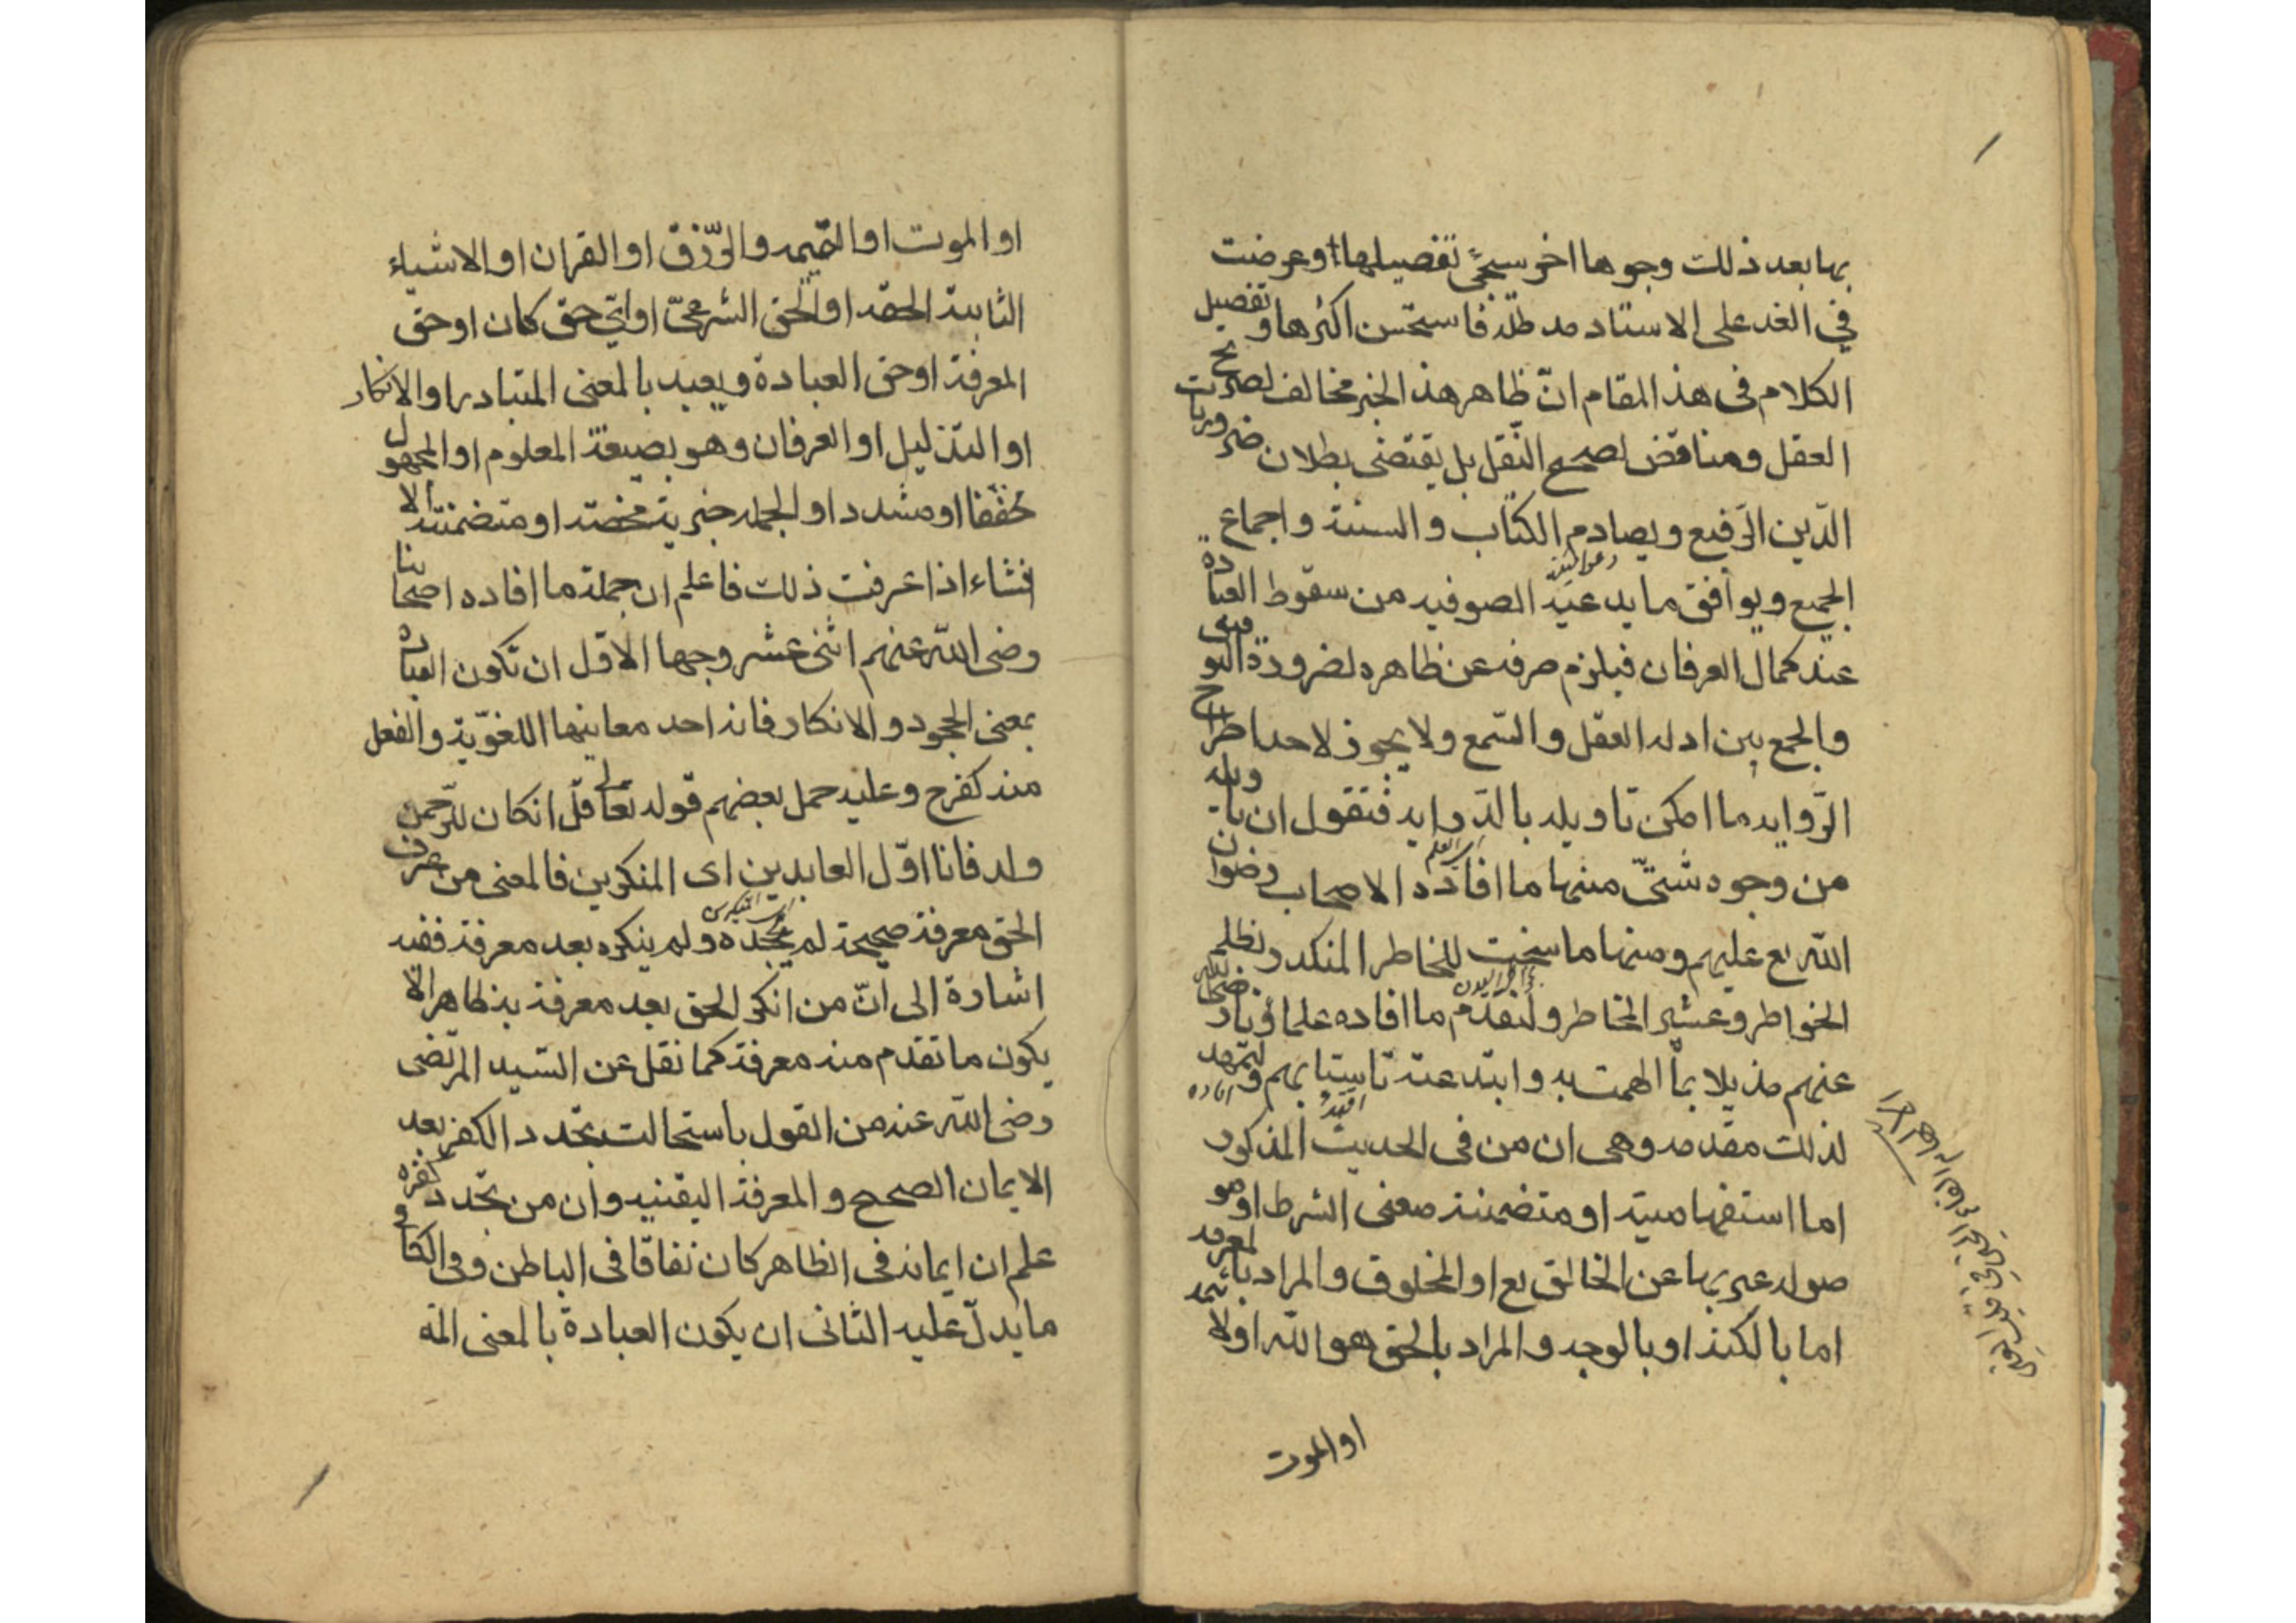 بها بعد ذلك وجوها اخر سيجئ تفصيلها وعرضت
في الغد على الاستاد مد ظله فاستحسن اكثرها وتفصيل
الكلام فى هذ المقام انّ ظاهر هذ الخبر مخالف لصريح
العقل ومناقض لصحيح النّقل بل يقتضى بطلان ضروريات
الدّين الرّفيع ويصادم الكتاب والسنة واجماع
الجميع ويوافق ما يدعيه الصوفيه من سقوط العبادة
عند كمال العرفان فيلزم صرفه عن ظاهره لضرورة التوفيق
والجمع بين ادله العقل والسّمع ولا يجوز لاحد اطراح
الرّوايه ما امكن تاويله بالدّرايه فنقول ان تاويله
من وجوه شتىّ منها ما افاده الاصحاب رضوان
الله تع عليهم ومنها ما سنحت للخاطر المنكدر بظلم
الخواطر وعشير المخاطر ولنقدّم ما افاده علماؤنا رضى الله
عنهم مذيلا بما الهمت به وابتدعته تاسيّا بهم ولنمهد
لذلك مقدمه وهى ان من فى الحديث المذكور
اما استفهاميته او متضمننة معنى الشرط او مو
صوله عبر بها عن الخالق تع او المخلوق والمراد بالمعرفه
اما بالكنه او بالوجه والمراد بالحق هو الله او لا
او الموت
او الموت او القيمه والرّزق او القران او الاشياء
الثابتة الحقه او الحق الشرعىّ او اىّ حق كان او حق
المعرفة او حق العبادة ويعبد بالمعنى المتبادر او الانكار
او التذليل او العرفان وهو بصيغة المعلوم او المجهول
مخففا او مشدد او الجمله خبريته محضته او متضمنته لالا
نشاء اذا عرفت ذلك فاعلم ان جملة ما افاده اصحابنا
رضى الله عنهم اثنى عشر وجها الاوّل ان تكون العبادة
بمعنى الجحود والانكار فانه احد معاينها اللغوّية والفعل
منه كفرح وعليه حمل بعضهم قوله تعالى قل ان كان للرّحمن
ولد فانا اوّل العابدين اى المنكرين فالمعنى من عرف
الحق معرفة صحيحة لم يجحده ولم ينكره بعد معرفة ففيه
اشارة الى انّ من انكر الحق بعد معرفة به ظاهرا لا
يكون ما تقدم منه معرفة كما نقل عن السّيد المرتضى
رضى الله عنه من القول باستحالت تجدد الكفر بعد
الايمان الصحيح والمعرفة اليقنيه وان من تجدد كفره
علم ان ايمانه فى الظاهر كان نفاقا فى الباطن وفى الكافى
ما يدلّ عليه الثانى ان يكون العبادة بالمعنى المت